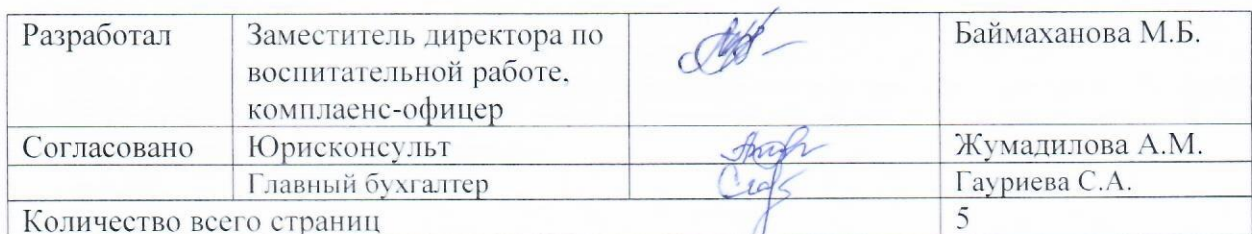 Разработал Заместитель директора по Баймаханова М.Б.
воспитательной работе,
комплаенс-офицер
Согласовано Юрисконсульт Жумадилова А.М.
Главный бухгалтер Гауриева С.А.
Количество всего страниц 5